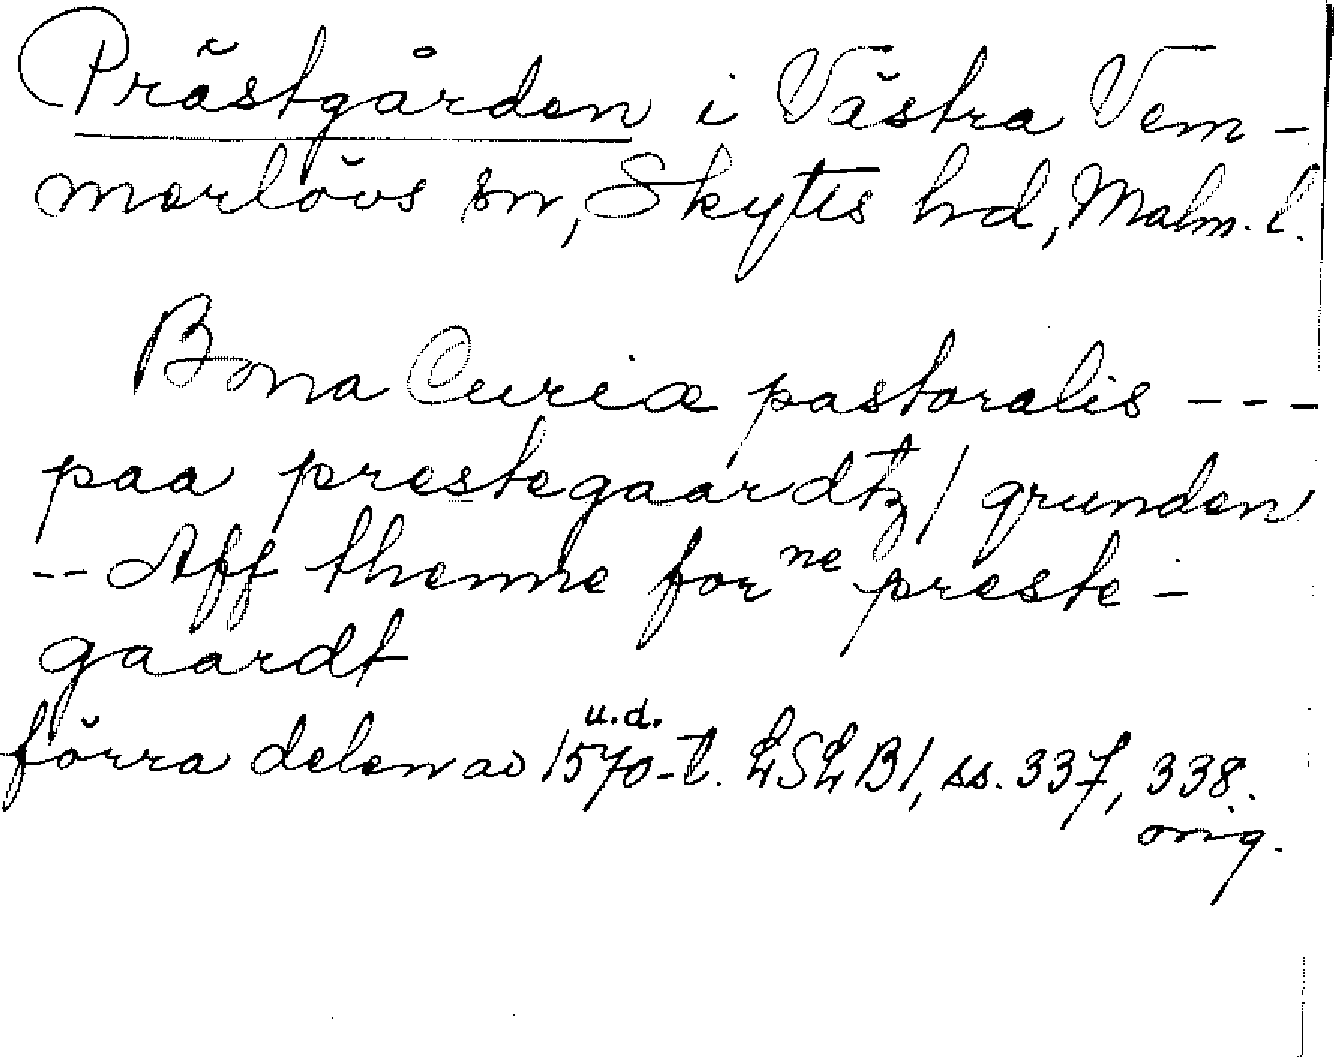 Prästgården i Västra Vem-
merlövs sn, Skytts hd, Malm. l.
Bona Curiæ pastoralis ---
paa prestegaardtz / grunden
-- Aff themme for ne preste-
gaardt
u.d.
förra delen av 1570-t. LSLB1, ss. 337, 338.
orig.